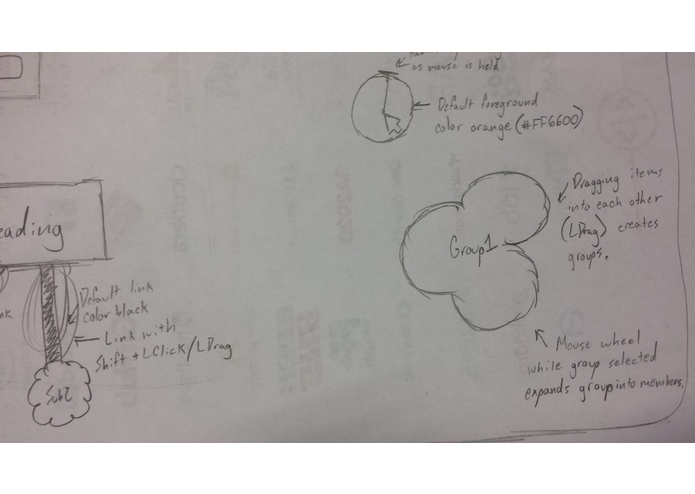 as mouse is held
Default foreground
color orange (#FF6600)
Dragging items
into each other
(LDrag) creates
groups.
Group1
eading
Default link
color black
Link with
Shift + LClick/LDrag
Sub2
Mouse wheel
while group selected
expands group into members.